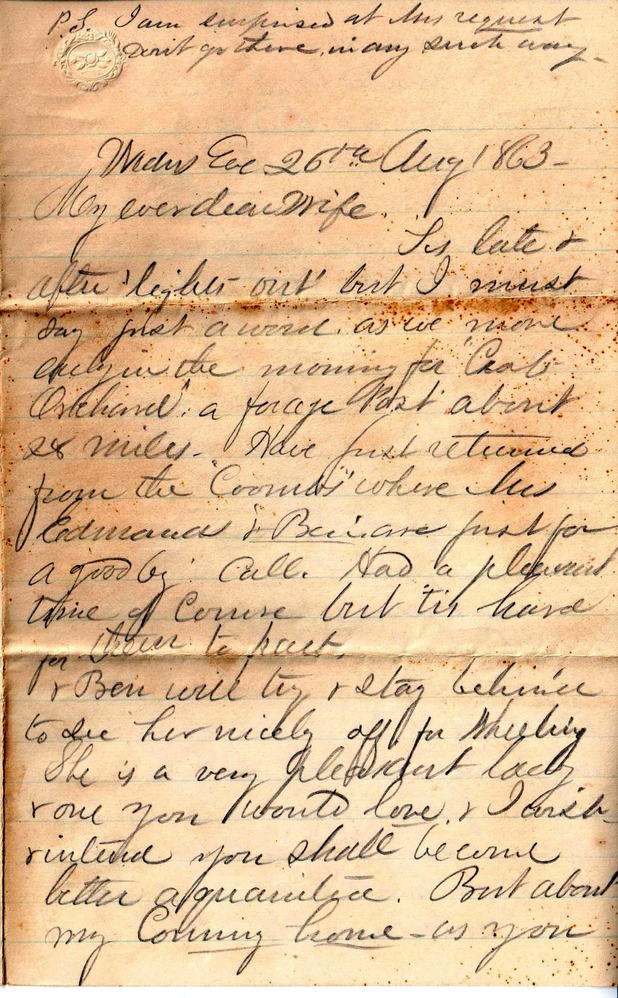 P.S. I am surprised at this request
don't go there in any such way.
Weds Eve 26th Aug 1863 -
My ever dear Wife.
Tis late &
after 'lights out' but I must
say just a word. as we move
early in the morning for "Crab
Orchard". a forage Post about
28 miles. Have just returned
from the "Coomes" where Mrs
Edmands & Ben are just for
a good by call. Had a pleasant
time of course but 'tis hard
for them to part.
& Ben will try & stay behind
to see her nicely off for Wheeling
She is a very pleasant lady
& one you would love. & I wish
& intend you shall become
better aquainted. But about
my Coming home - as you